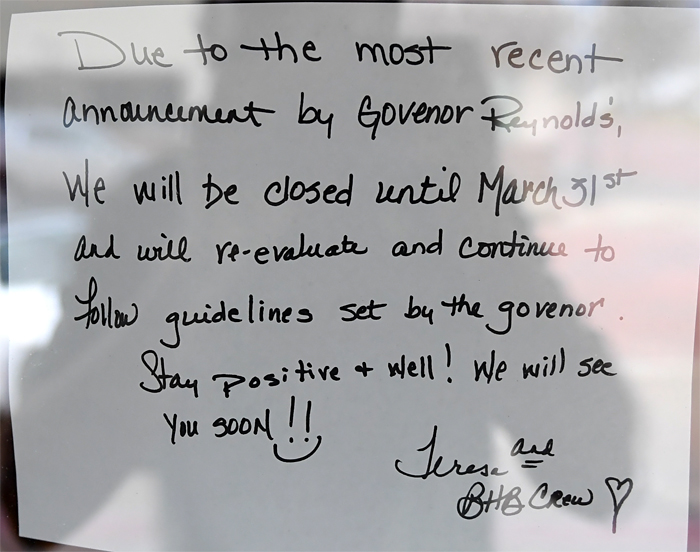 Due to the most recent
announcement by Govenor Reynolds',
We will be closed until March 31st
and will re-evaluate and continue to
follow guidelines set by the govenor.
Stay positive + well! We will see
you soon!!
Teresa and
BHB Crew ♡